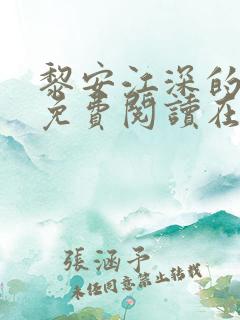 黎安江深的
免費閱讀在
張涵予
未经同意禁止转载